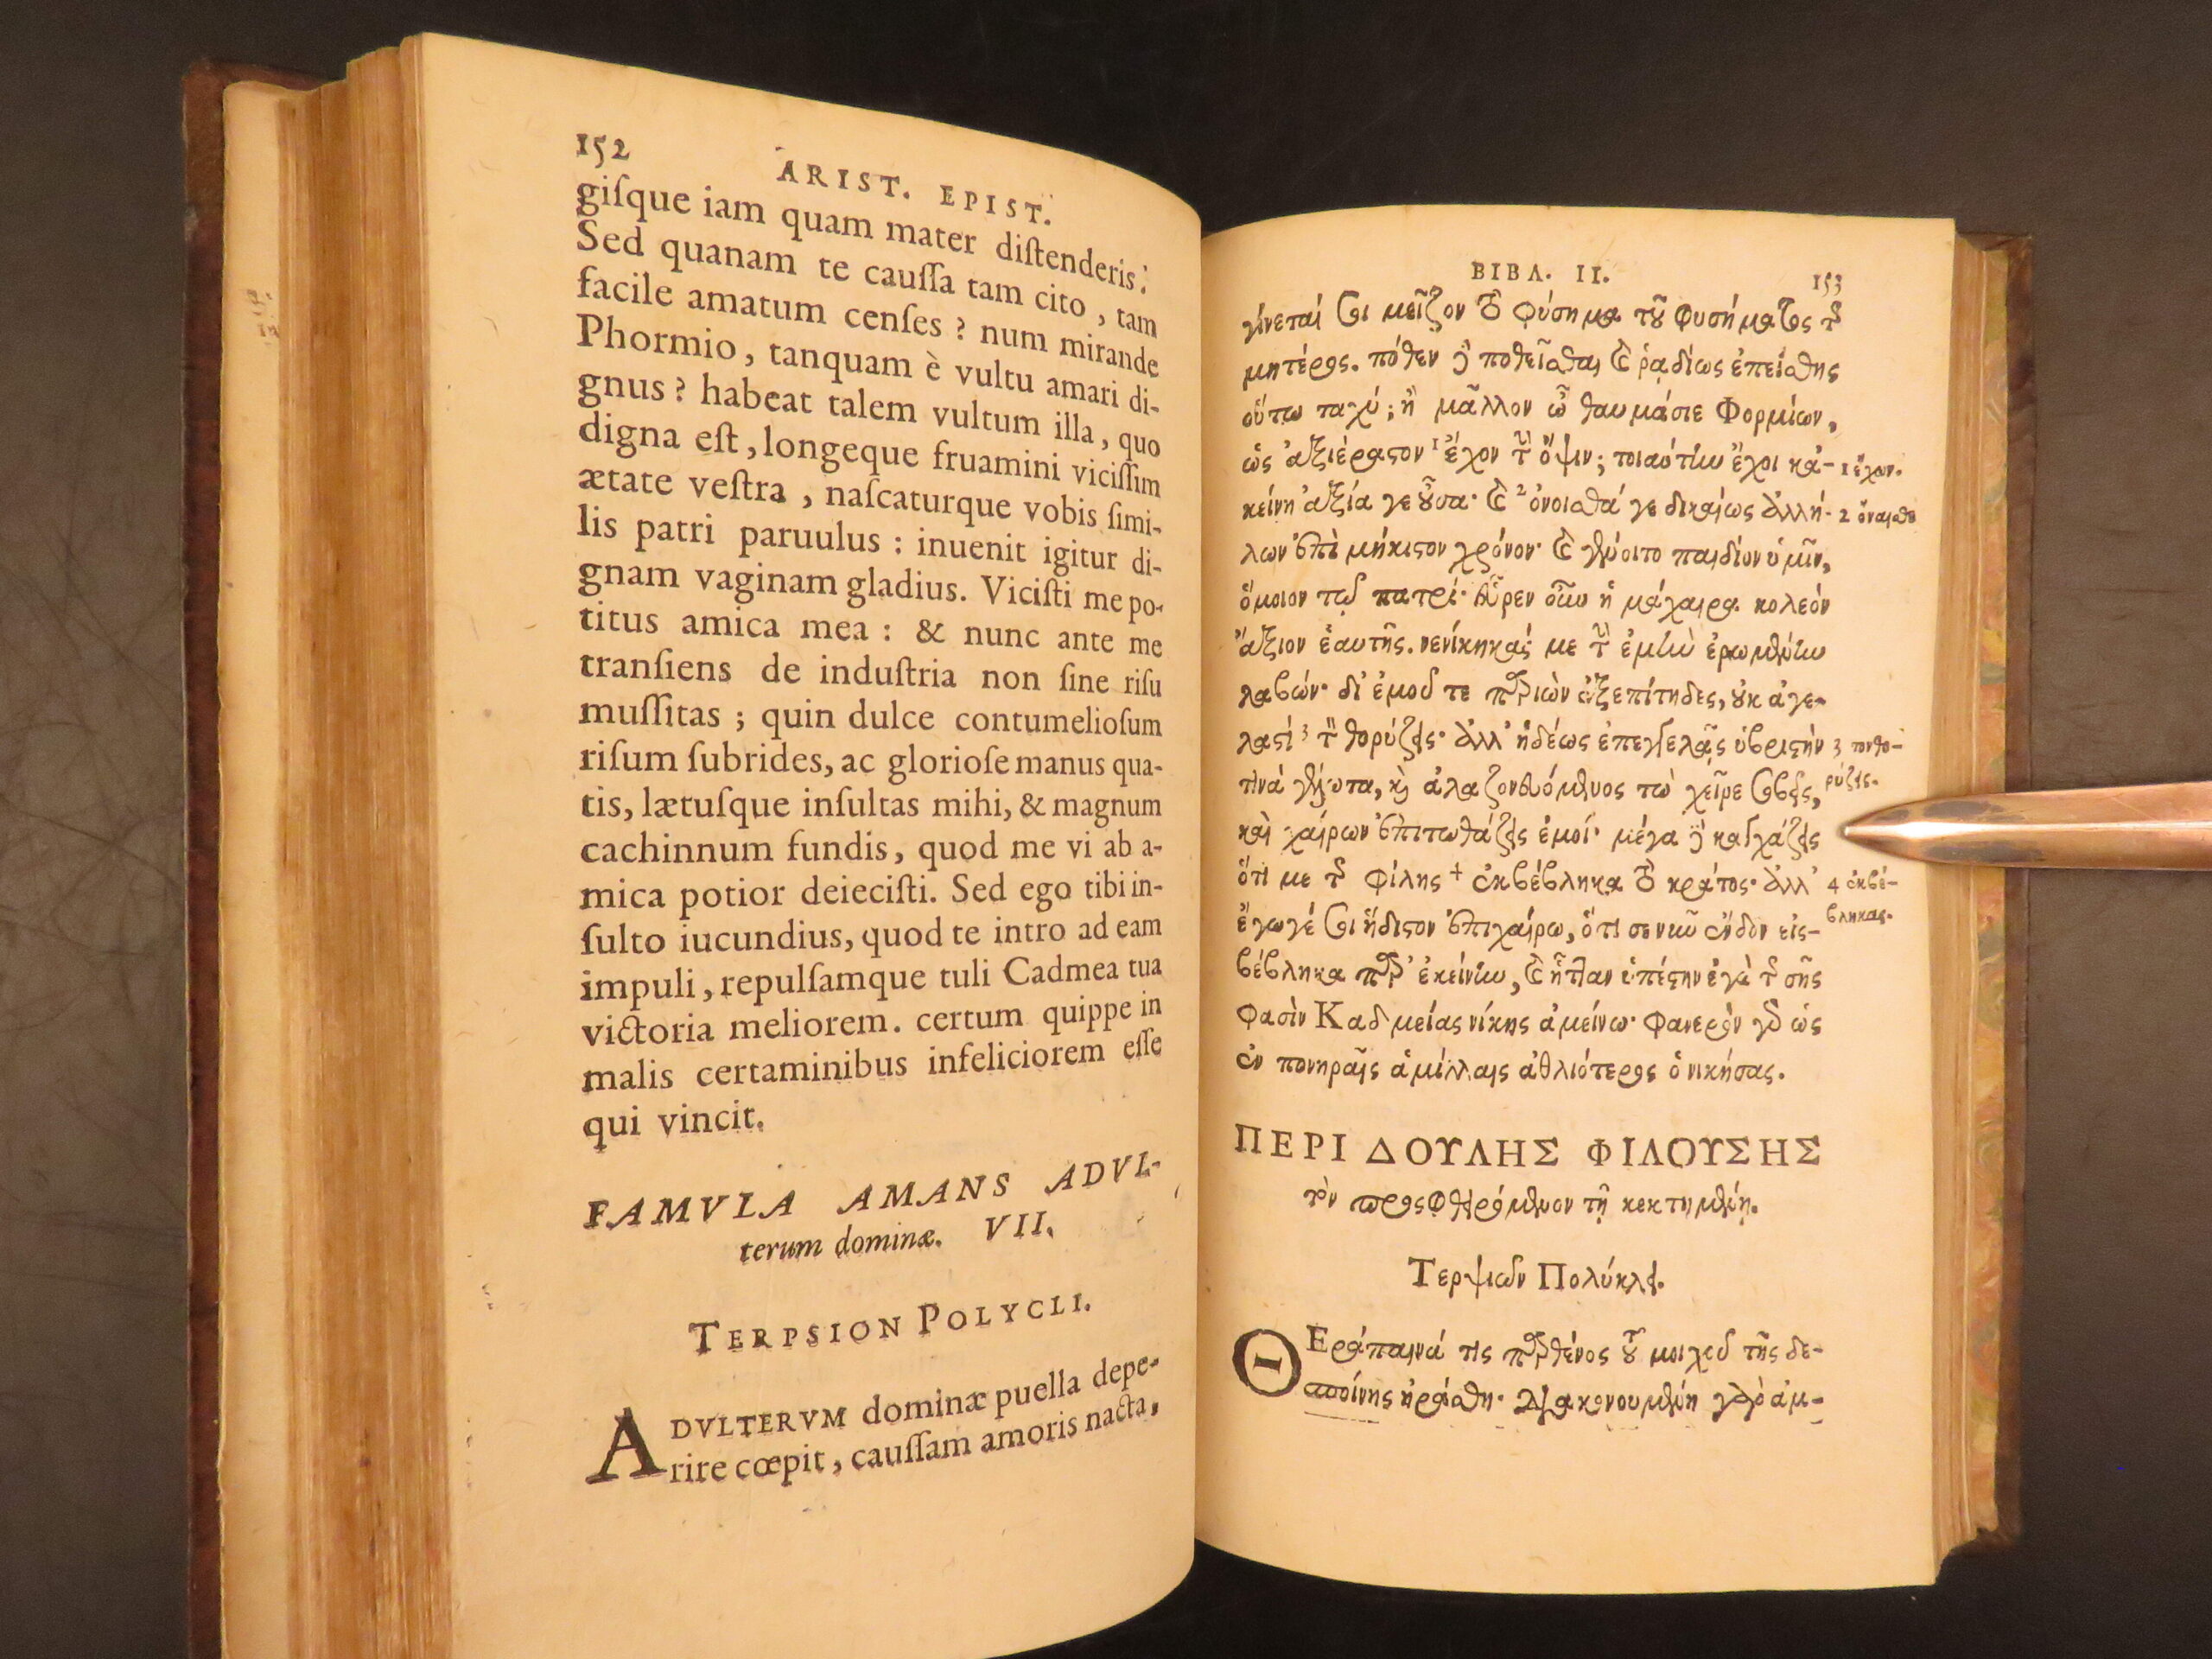 152
ARIST. EPIST.
giſque iam quam mater diſtenderis?
Sed quanam te cauſſa tam cito, tam
facile amatum cenſes? num mirande
Phormio, tanquam è vultu amari di-
gnus? habeat talem vultum illa, quo
digna eſt, longeque fruamini viciſſim
ætate veſtra, naſcaturque vobis ſimi-
lis patri paruulus: inuenit igitur di-
gnam vaginam gladius. Viciſti me po-
titus amica mea: & nunc ante me
tranſiens de induſtria non ſine riſu
muſſitas; quin dulce contumelioſum
riſum ſubrides, ac glorioſe manus qua-
tis, lætuſque inſultas mihi, & magnum
cachinnum fundis, quod me vi ab a-
mica potior deieciſti. Sed ego tibi in-
ſulto iucundius, quod te intro ad eam
impuli, repulſamque tuli Cadmea tua
victoria meliorem. certum quippe in
malis certaminibus infeliciorem eſſe
qui vincit.
FAMVLA AMANS ADVL-
terum dominæ. VII.
TERPSION POLYCLI.
ADVLTERVM dominæ puella depe-
rire cœpit, cauſſam amoris nacta,
ΒΙΒΛ. ΙΙ.
153
γίνεταί σοι μεῖζον τὸ φύσημα τοῦ φυσήματος τῆς
μητέρος. πόθεν ἢ ποθεῖσθαι καὶ ῥᾳδίως ἐπείσθης
οὕτω ταχύ; ἢ μᾶλλον ὦ θαυμάσιε Φορμίων,
ὡς ἀξιέραστον 1 ἔχον τὴν ὄψιν; τοιαύτην ἔχοι κἀ-
1 ἔχων.
κείνη ἀξία γε οὖσα· καὶ 2 ὀνοισθά γε δικαίως ἀλλή-
2 ὄναισθε
λων ἐπὶ μήκιστον χρόνον· καὶ γένοιτο παιδίον ὑμῖν,
ὅμοιον τῷ πατρί· εὗρεν οὖν ἡ μάχαιρα κολεὸν
ἄξιον ἑαυτῆς. νενίκηκάς με τὴν ἐμὴν ἐρωμένην
λαβών· δι' ἐμοῦ τε παριὼν ἐξεπίτηδες, οὐκ ἀγε-
λαστί 3 τὴν θορύζεις· ἀλλ' ἡδέως ἐπεγγελᾷς ὑβριστήν
3 τονθο-
ρύζεις.
τινά γέλωτα, καὶ ἀλαζονευόμενος τὼ χεῖρε σοβεῖς,
καὶ χαίρων ἐπιτωθάζεις ἐμοί· μέγα ἢ καγχάζεις
ὅτι με τῆς φίλης 4 ἐκβέβληκα τὸ κράτος· ἀλλ'
4 ἐκβέ-
βληκας.
ἔγωγέ σοι ἥδιστον ἐπιχαίρω, ὅτι σε νῦν ἔνδον εἰς-
βέβληκα παρ' ἐκείνην, καὶ ἧτταν ὑπέστην ἐγὼ τῆς σῆς
φασὶν Καδμείας νίκης ἀμείνω· φανερὸν γὰρ ὡς
ἐν πονηραῖς ἁμίλλαις ἀθλιότερος ὁ νικήσας.
ΠΕΡΙ ΔΟΥΛΗΣ ΦΙΛΟΥΣΗΣ
τὸν προςφθειρόμενον τῇ κεκτημένῃ.
Τερψίων Πολύκλει.
ΘΕράπαινά τις παρθένος τοῦ μοιχοῦ τῆς δε-
σποίνης ἠράσθη· διακονουμένη γὰρ ἀμ-